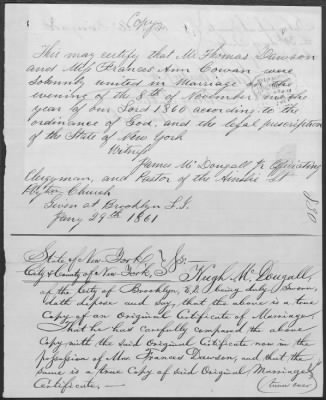 Copy
This may certify that Mr Thomas Dawson
and Miss Frances Ann Cowan were
solemnly united in Marriage on the
evening of the 8th of November in the
year of our Lord 1860 according to the
ordinance of God, and the legal prescription
of the State of New York
Witness
James McDougall Jr Officiating
Clergyman, and Pastor of the Ainslie St
Church
Given at Brooklyn L.I.
Jany 29th 1861
State of New York
City & County of New York, } ss: Hugh McDougall,
of the City of Brooklyn, being duly sworn,
doth depose and say, that the above is a true
Copy of an Original Certificate of Marriage,
That he has carefully compared the above
Copy with the said Original Certificate now in the
possession of Mrs Frances Dawson, and that the
same is a true Copy of said Original Marriage
Certificate. —
(turn over)